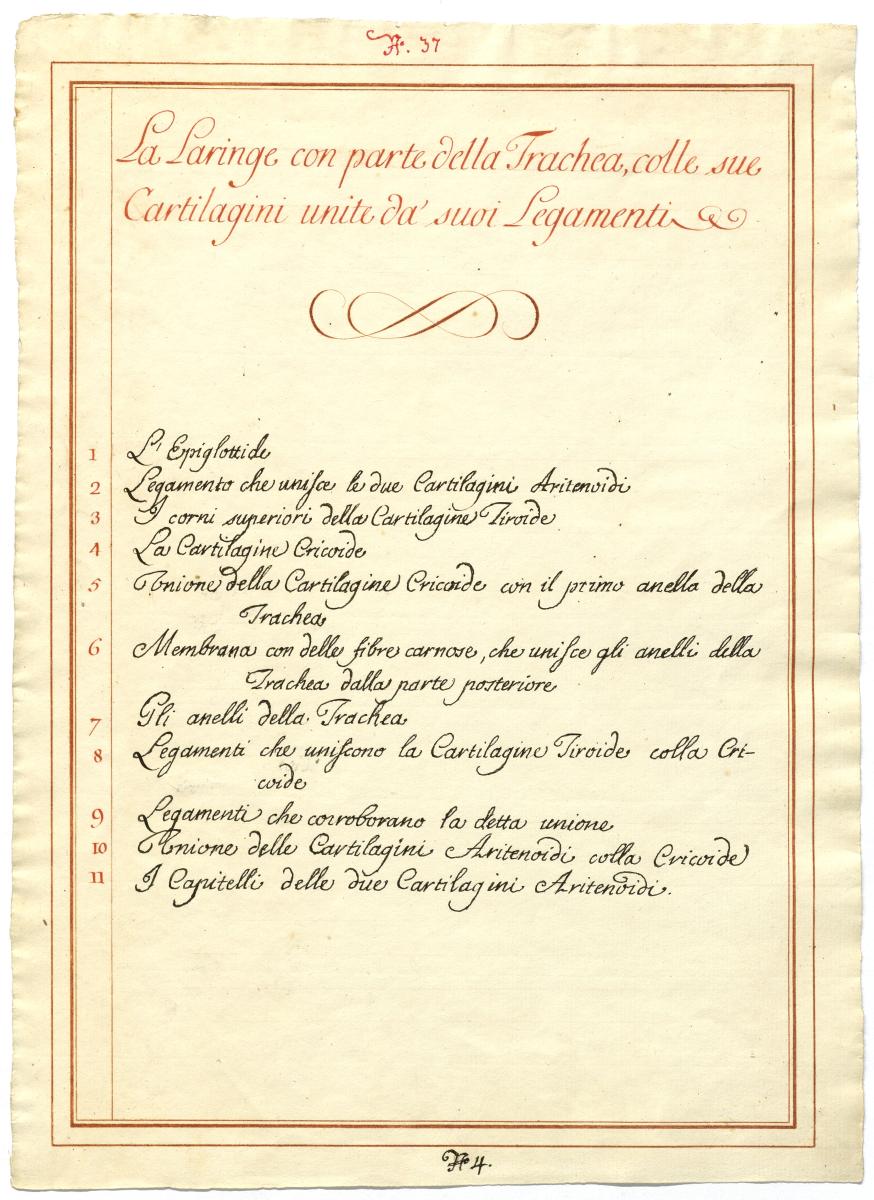 N.º 37
La Laringe con parte della Trachea, colle sue
Cartilagini unite da' suoi Legamenti
1 L' Epiglottide
2 Legamento che unisce le due Cartilagini Aritenoidi
3 I corni superiori della Cartilagine Tiroide
4 La Cartilagine Cricoide
5 Unione della Cartilagine Cricoide con il primo anella della
Trachea
6 Membrana con delle fibre carnose, che unisce gli anelli della
Trachea dalla parte posteriore
7 Gli anelli della Trachea
8 Legamenti che uniscono la Cartilagine Tiroide colla Cri-
coide
9 Legamenti che corroborano la detta unione
10 Unione delle Cartilagini Aritenoidi colla Cricoide
11 I Capitelli delle due Cartilagini Aritenoidi.
Nº 4.